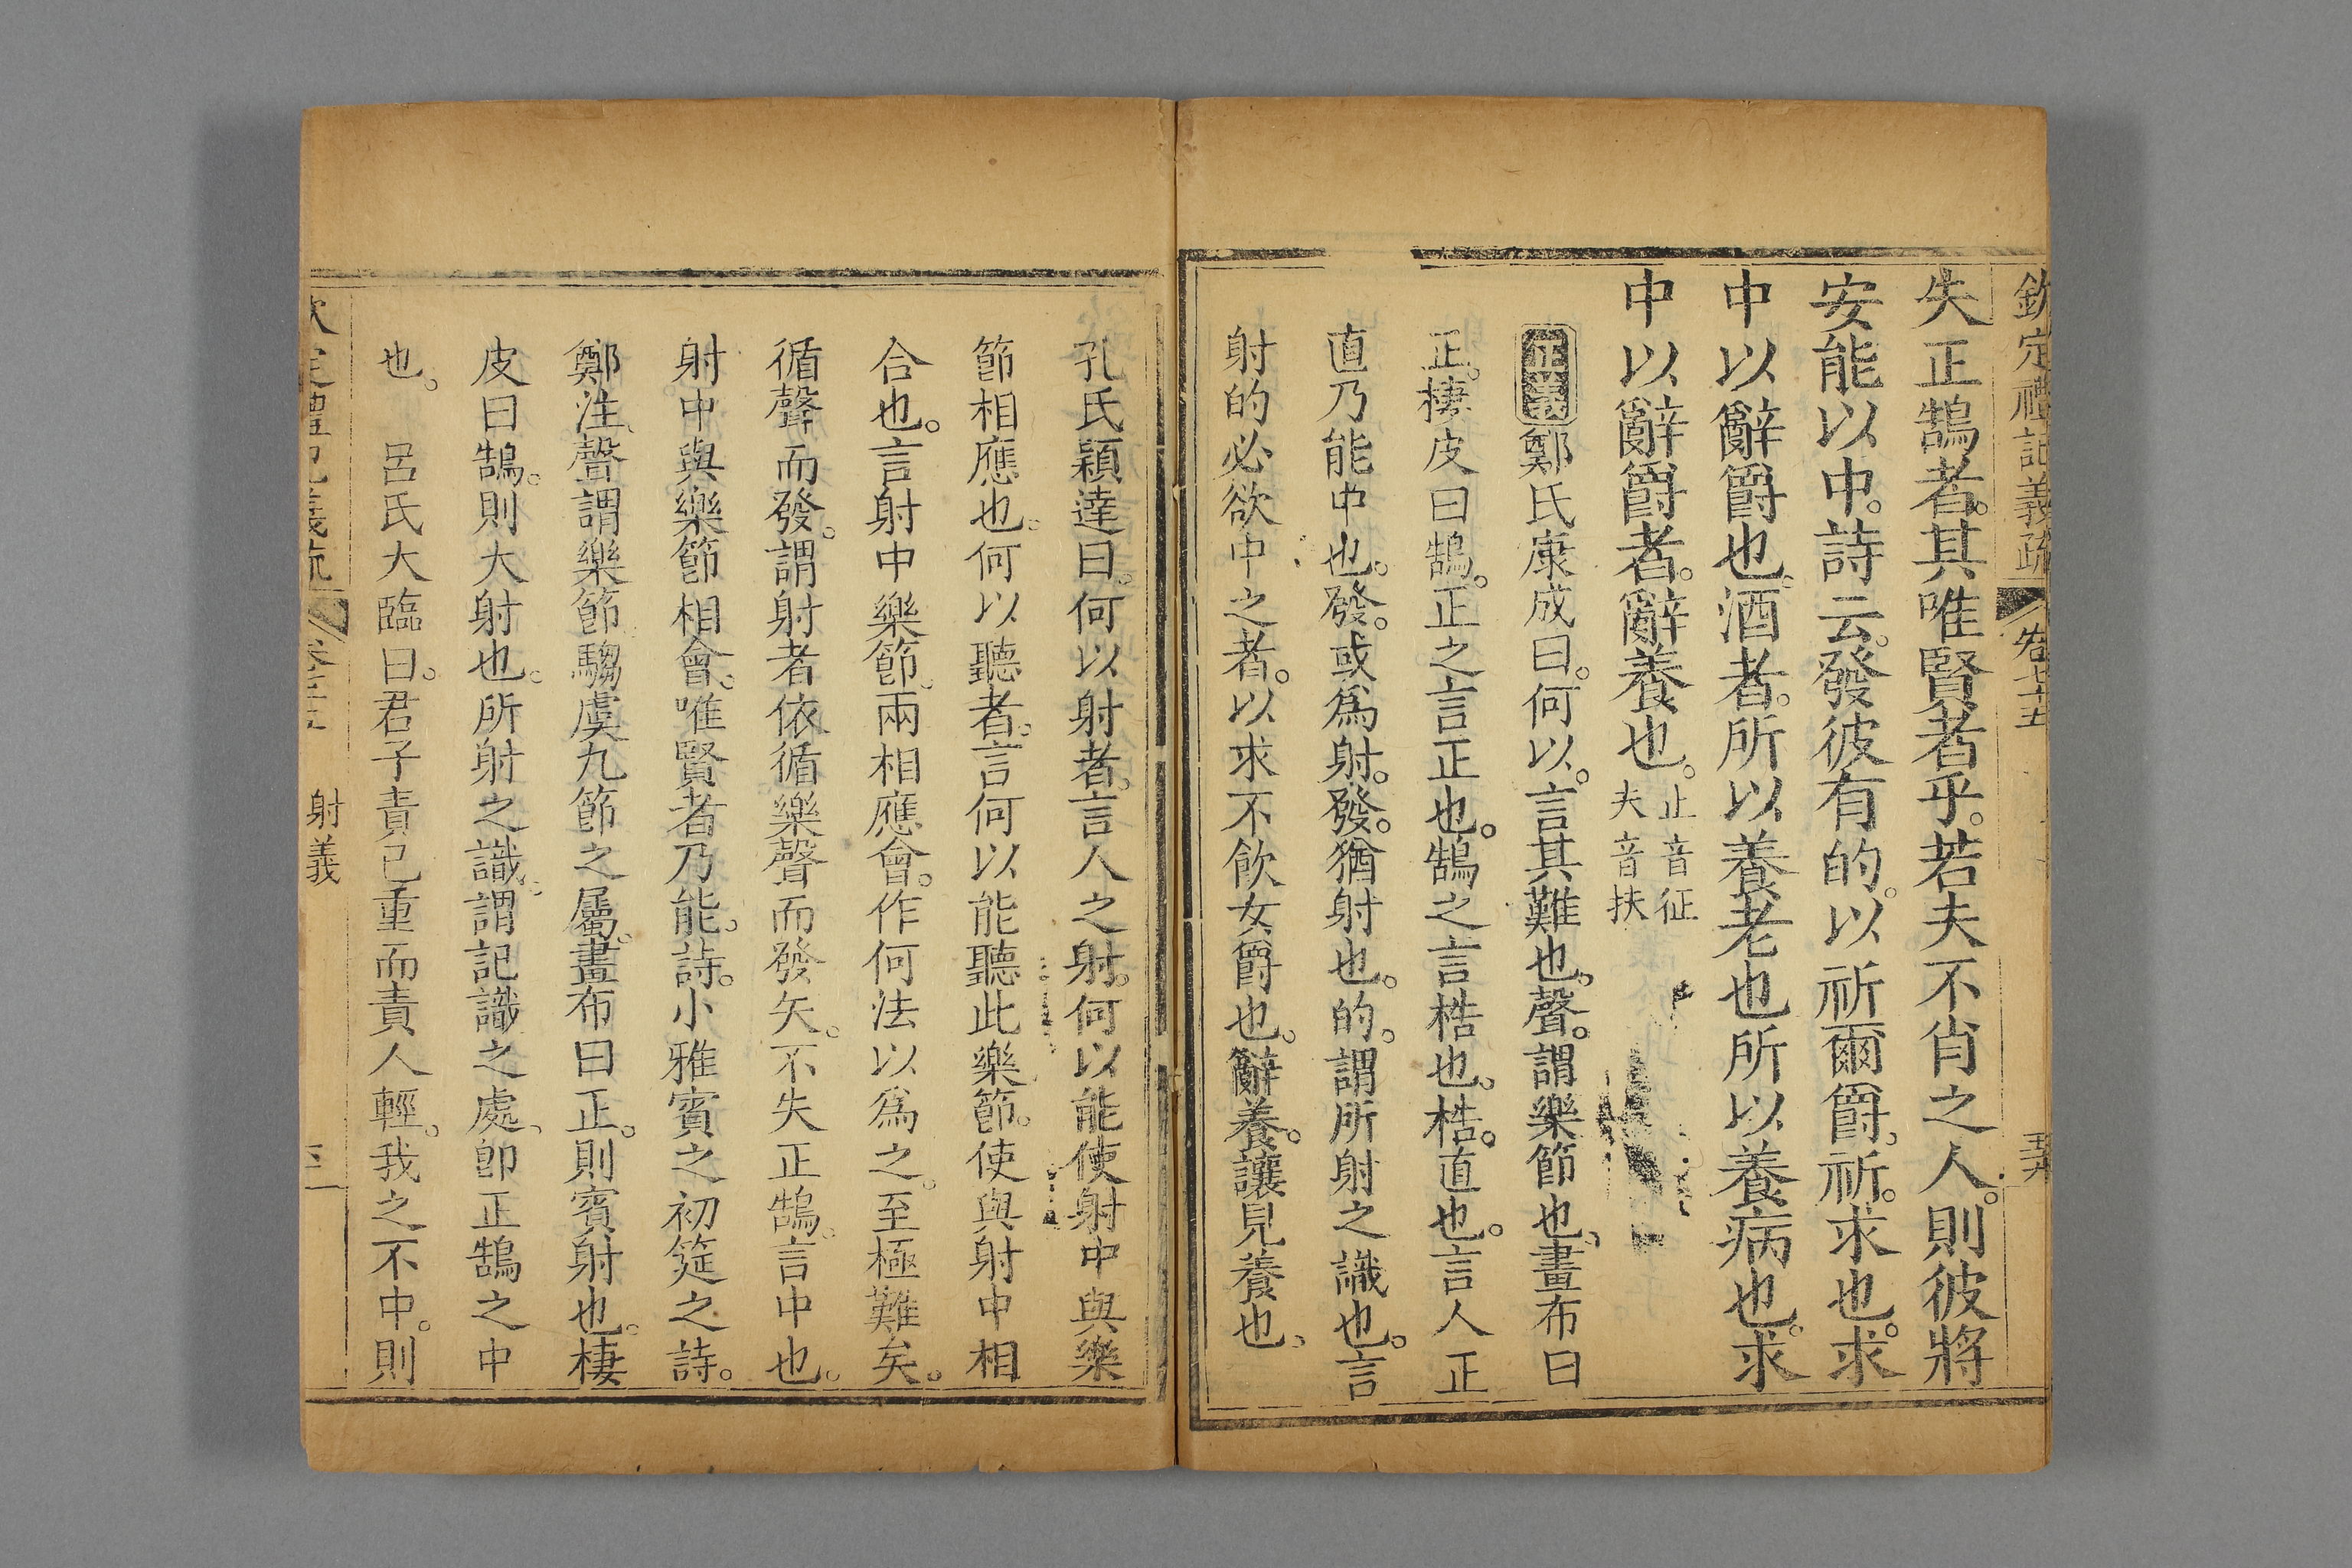 欽定禮記義疏 卷七十五
失正鵠者。其唯賢者乎。若夫不肖之人。則彼將
安能以中。詩云。發彼有的。以祈爾爵。祈。求也。求
中以辭爵也。酒者。所以養老也所以養病也。求
中以辭爵者。辭養也。正音征夫音扶
正義鄭氏康成曰。何以。言其難也。聲。謂樂節也、畫布曰
正。棲皮曰鵠。正之言正也。鵠之言梏也。梏。直也。言人正
直乃能中也。發。或爲射。發。猶射也。的。謂所射之識也。言
射的必欲中之者。以求不飲女爵也。辭養。讓見養也、
孔氏穎達曰。何以射者。言人之射。何以能使射中與樂
節相應也。何以聽者。言何以能聽此樂節。使與射中相
合也。言射中樂節。兩相應會。作何法以爲之。至極難矣。
循聲而發。謂射者依循樂聲而發矢。不失正鵠。言中也。
射中與樂節相會。唯賢者乃能。詩。小雅賓之初筵之詩。
鄭注、聲謂樂節、騶虞九節之屬。畫布曰正。則賓射也。棲
皮曰鵠。則大射也。所射之識。謂記識之處、卽正鵠之中
也。 呂氏大臨曰。君子責已重而責人輕。我之不中。則
射義